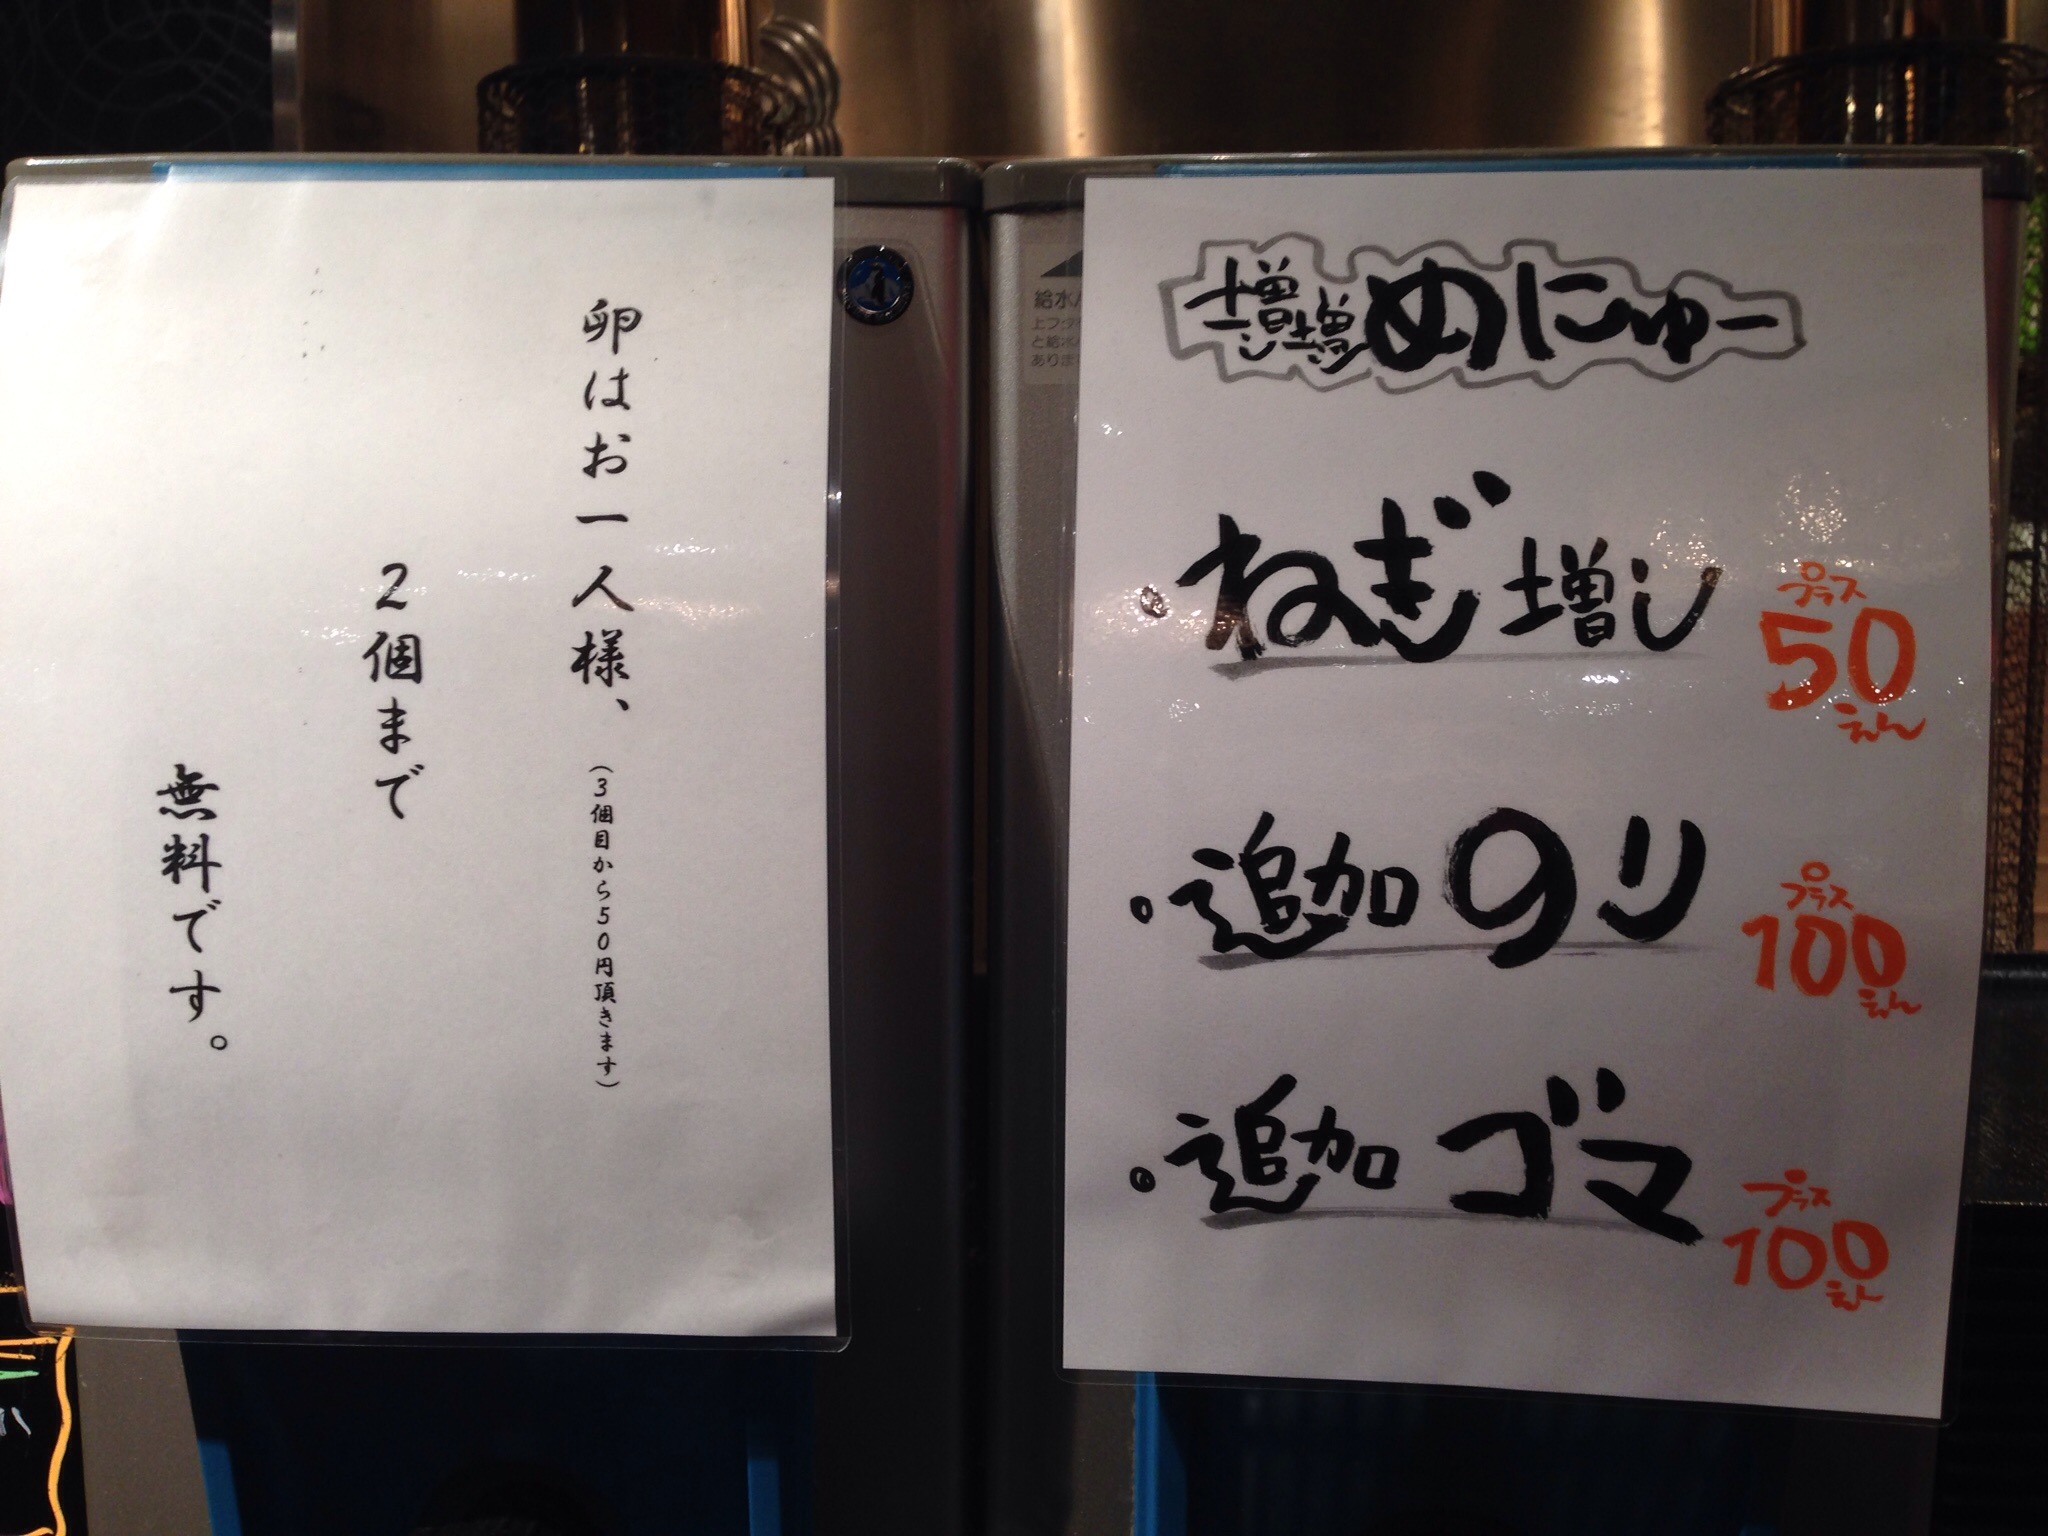 卵はお一人様、(3個目から50円頂きます)
2個まで
無料です。
増し増しめにゅー
・ねぎ増し プラス50えん
・追加のり プラス100えん
・追加ゴマ プラス100えん
給水
上フタ
と給水
ありま